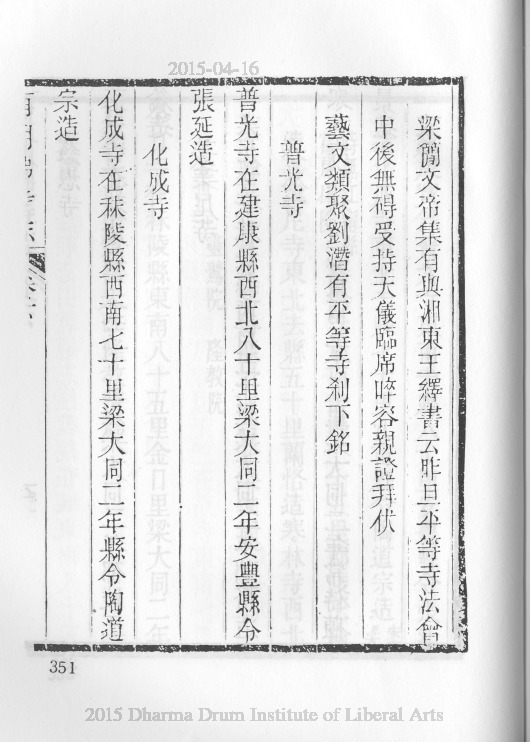 2015-04-16
梁簡文帝集有與湘東王繹書云昨旦平等寺法會
中後無碍受持天儀臨席睟容親證拜伏
藝文類聚劉潛有平等寺刹下銘
普光寺
普光寺在建康縣西北八十里梁大同二年安豐縣令
張延造
化成寺
化成寺在秣陵縣西南七十里梁大同二年縣令陶道
宗造
351
2015 Dharma Drum Institute of Liberal Arts